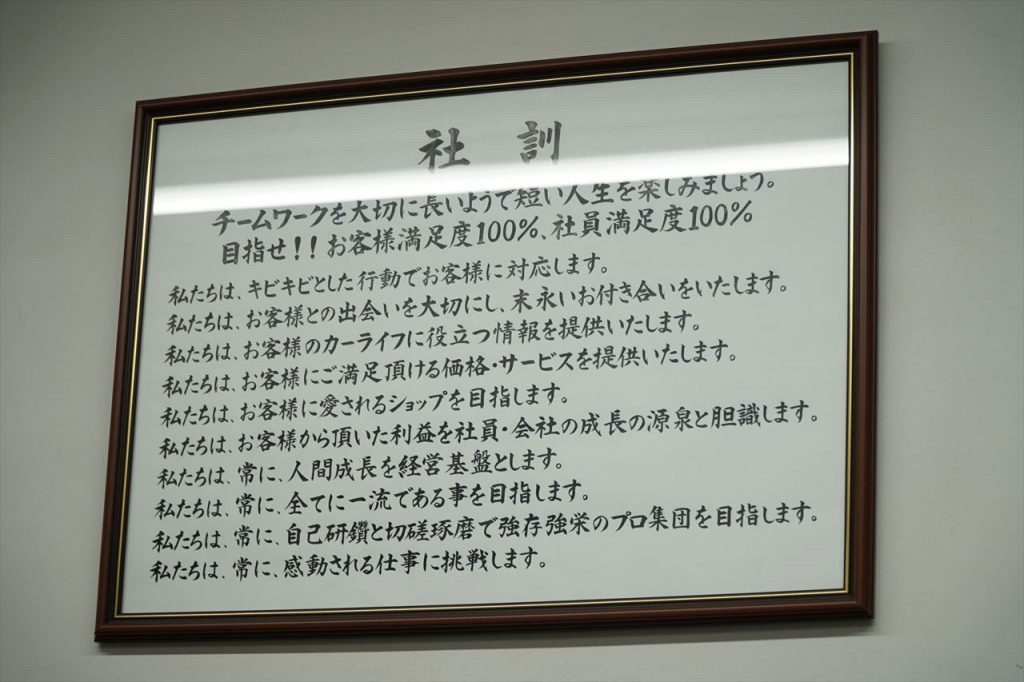 社訓
チームワークを大切に長いようで短い人生を楽しみましょう。
目指せ！！お客様満足度100％、社員満足度100％
私たちは、キビキビとした行動でお客様に対応します。
私たちは、お客様との出会いを大切にし、末永いお付き合いをいたします。
私たちは、お客様のカーライフに役立つ情報を提供いたします。
私たちは、お客様にご満足頂ける価格・サービスを提供いたします。
私たちは、お客様に愛されるショップを目指します。
私たちは、お客様から頂いた利益を社員・会社の成長の源泉と胆識します。
私たちは、常に、人間成長を経営基盤とします。
私たちは、常に、全てに一流である事を目指します。
私たちは、常に、自己研鑽と切磋琢磨で強存強栄のプロ集団を目指します。
私たちは、常に、感動される仕事に挑戦します。